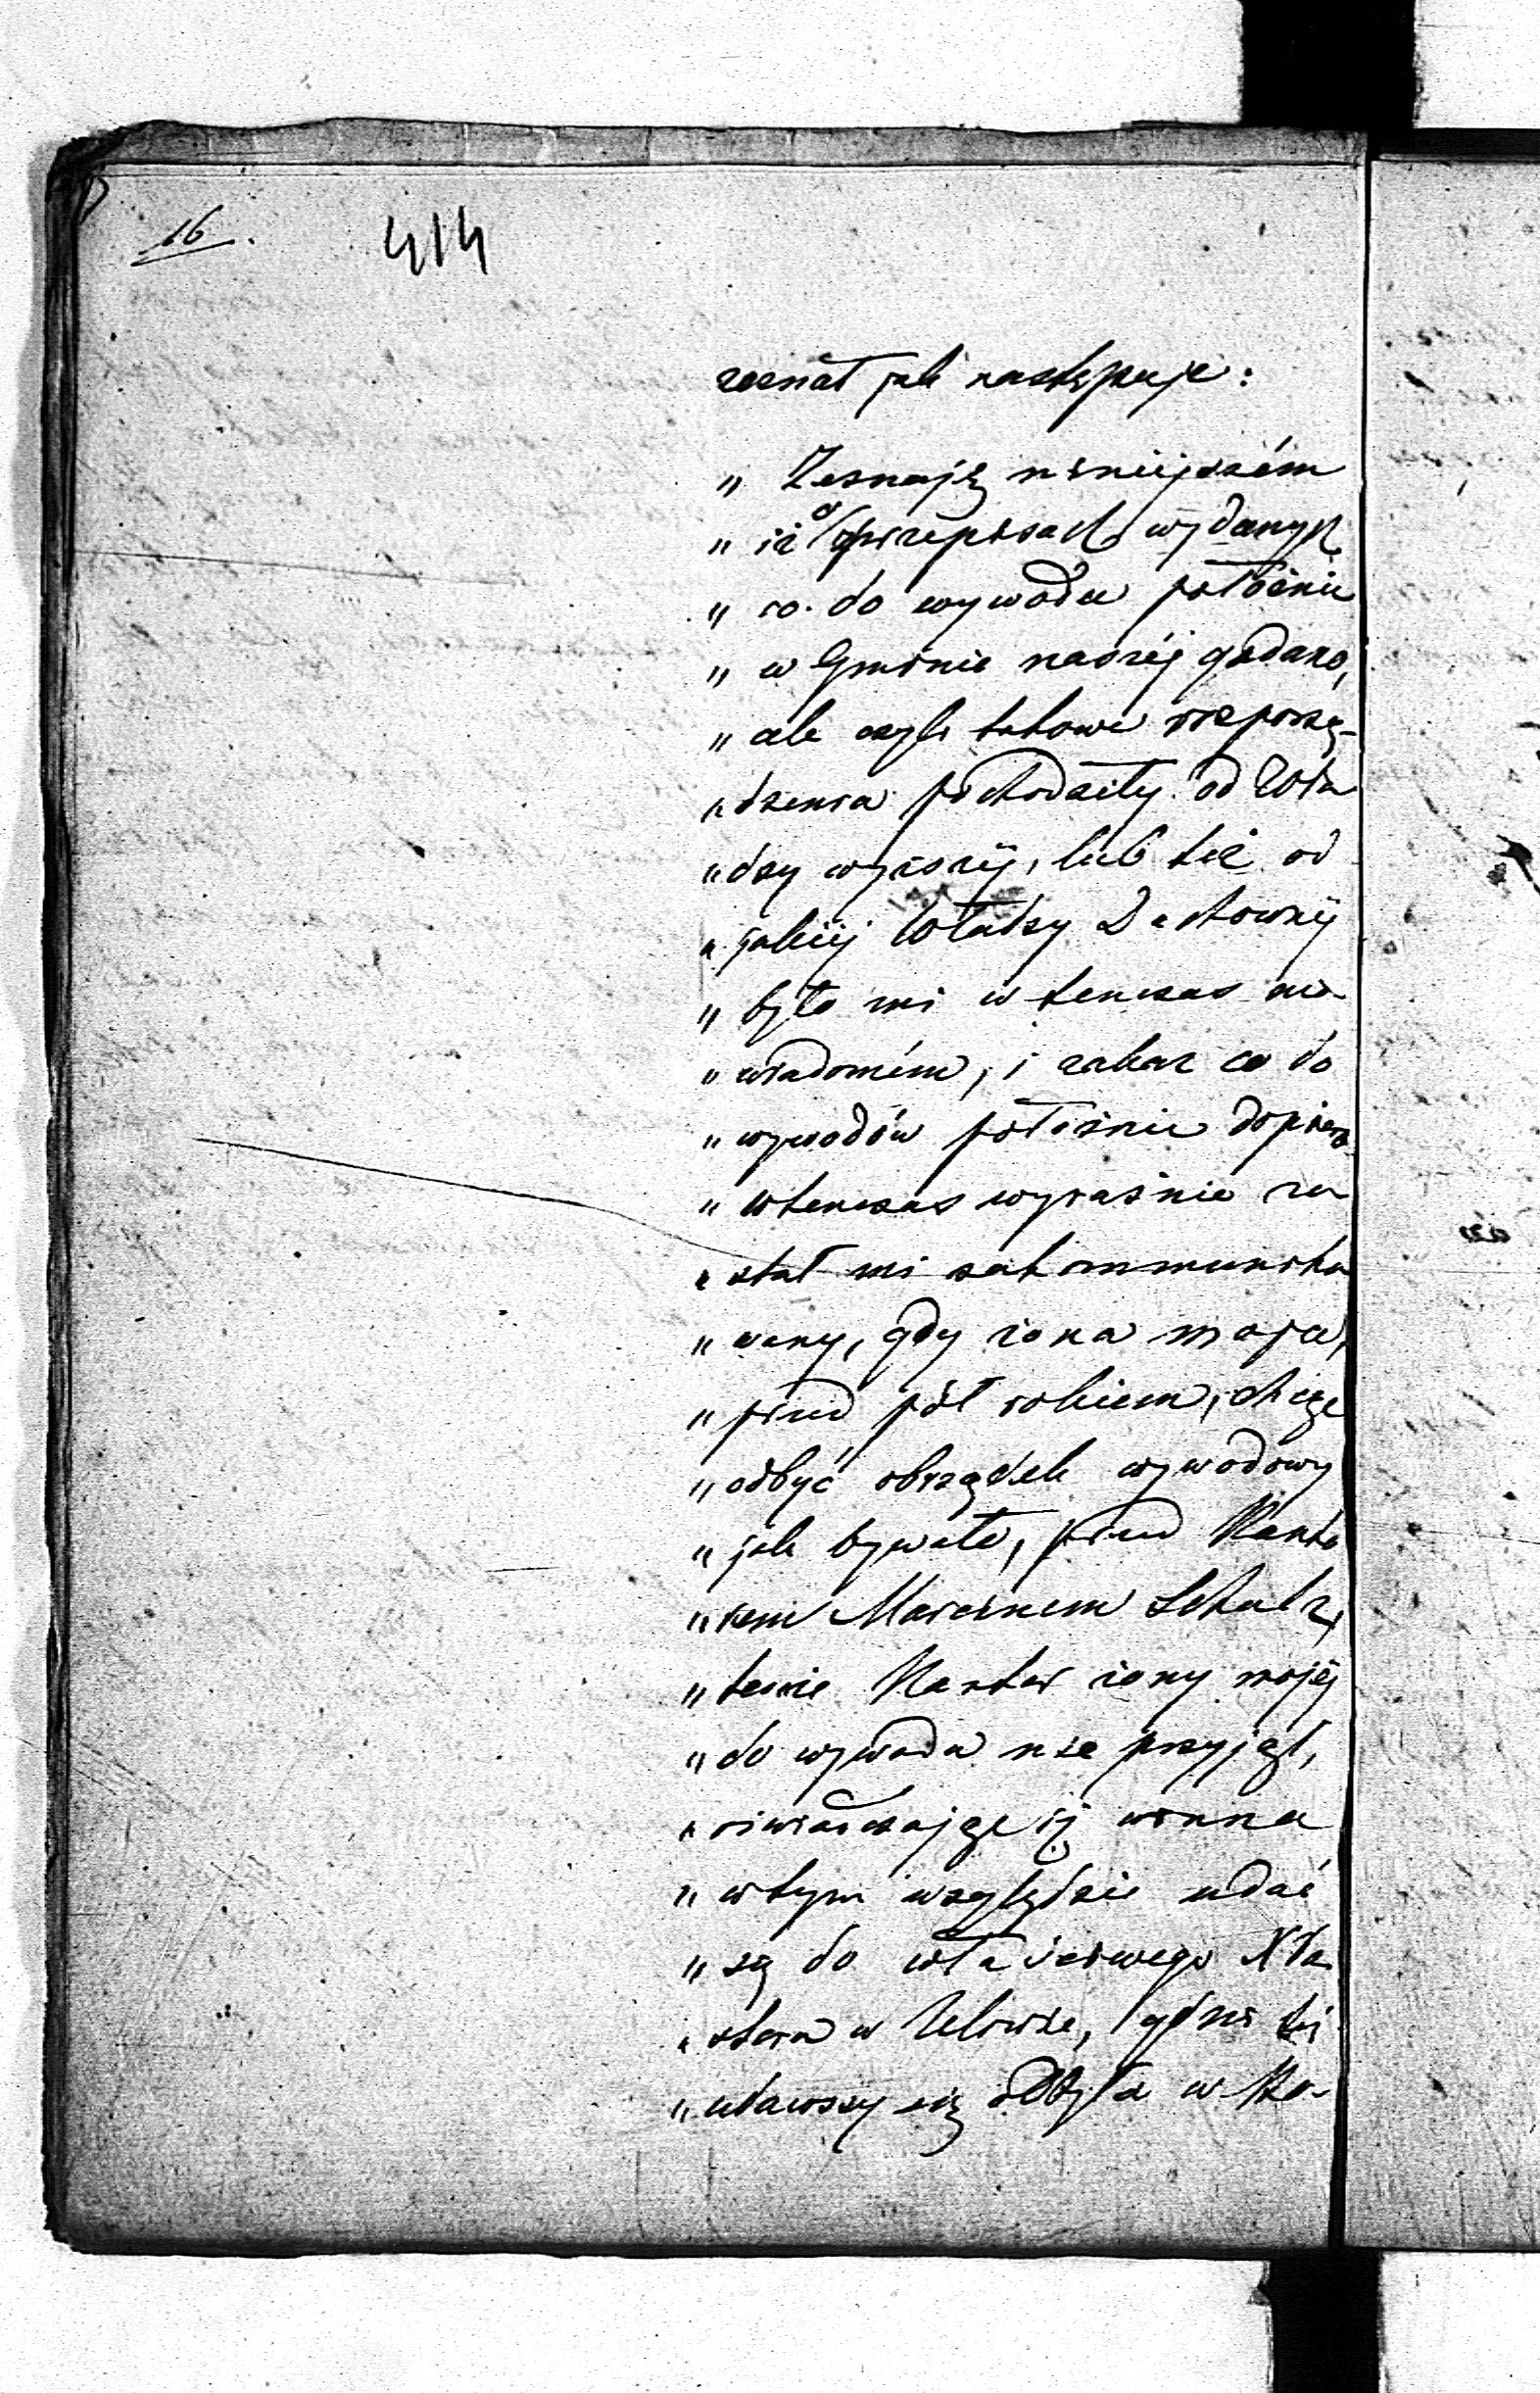 16.
414
zeznał jak następuje:
„ Zeznaję niniejszém
„ iż o przepisach wydanych
„ co do wywodu położnic
„ w Gminie naszéj gadano,
„ ale czyli takowe rozporzą-
„ dzenia pochodziły od Wła
„ dzy wyższéj, lub też od
„ jakiéj Władzy Duchownéj
„ było mi w tenczas nie
„ wiadomém, i zakaz co do
„ wywodów położnic dopiero
„ wtenczas wyraźnie zo
„ stał mi zakommuniko
„ wany, gdy żona moja,
„ przed pół rokiem, chcąc
„ odbyć obrządek wywodowy
„ jak bywało, przed Kanto
„ rem Marcinem Schulz,
„ tenże Kantor żony mojéj
„ do wywodu nie przyjął,
„ oświadczając iż winna
„ w tym względzie udać
„ się do właściwego Pa
„ stora w Zelowie, gdzie téż
„ udawszy się odbyła w Ko-